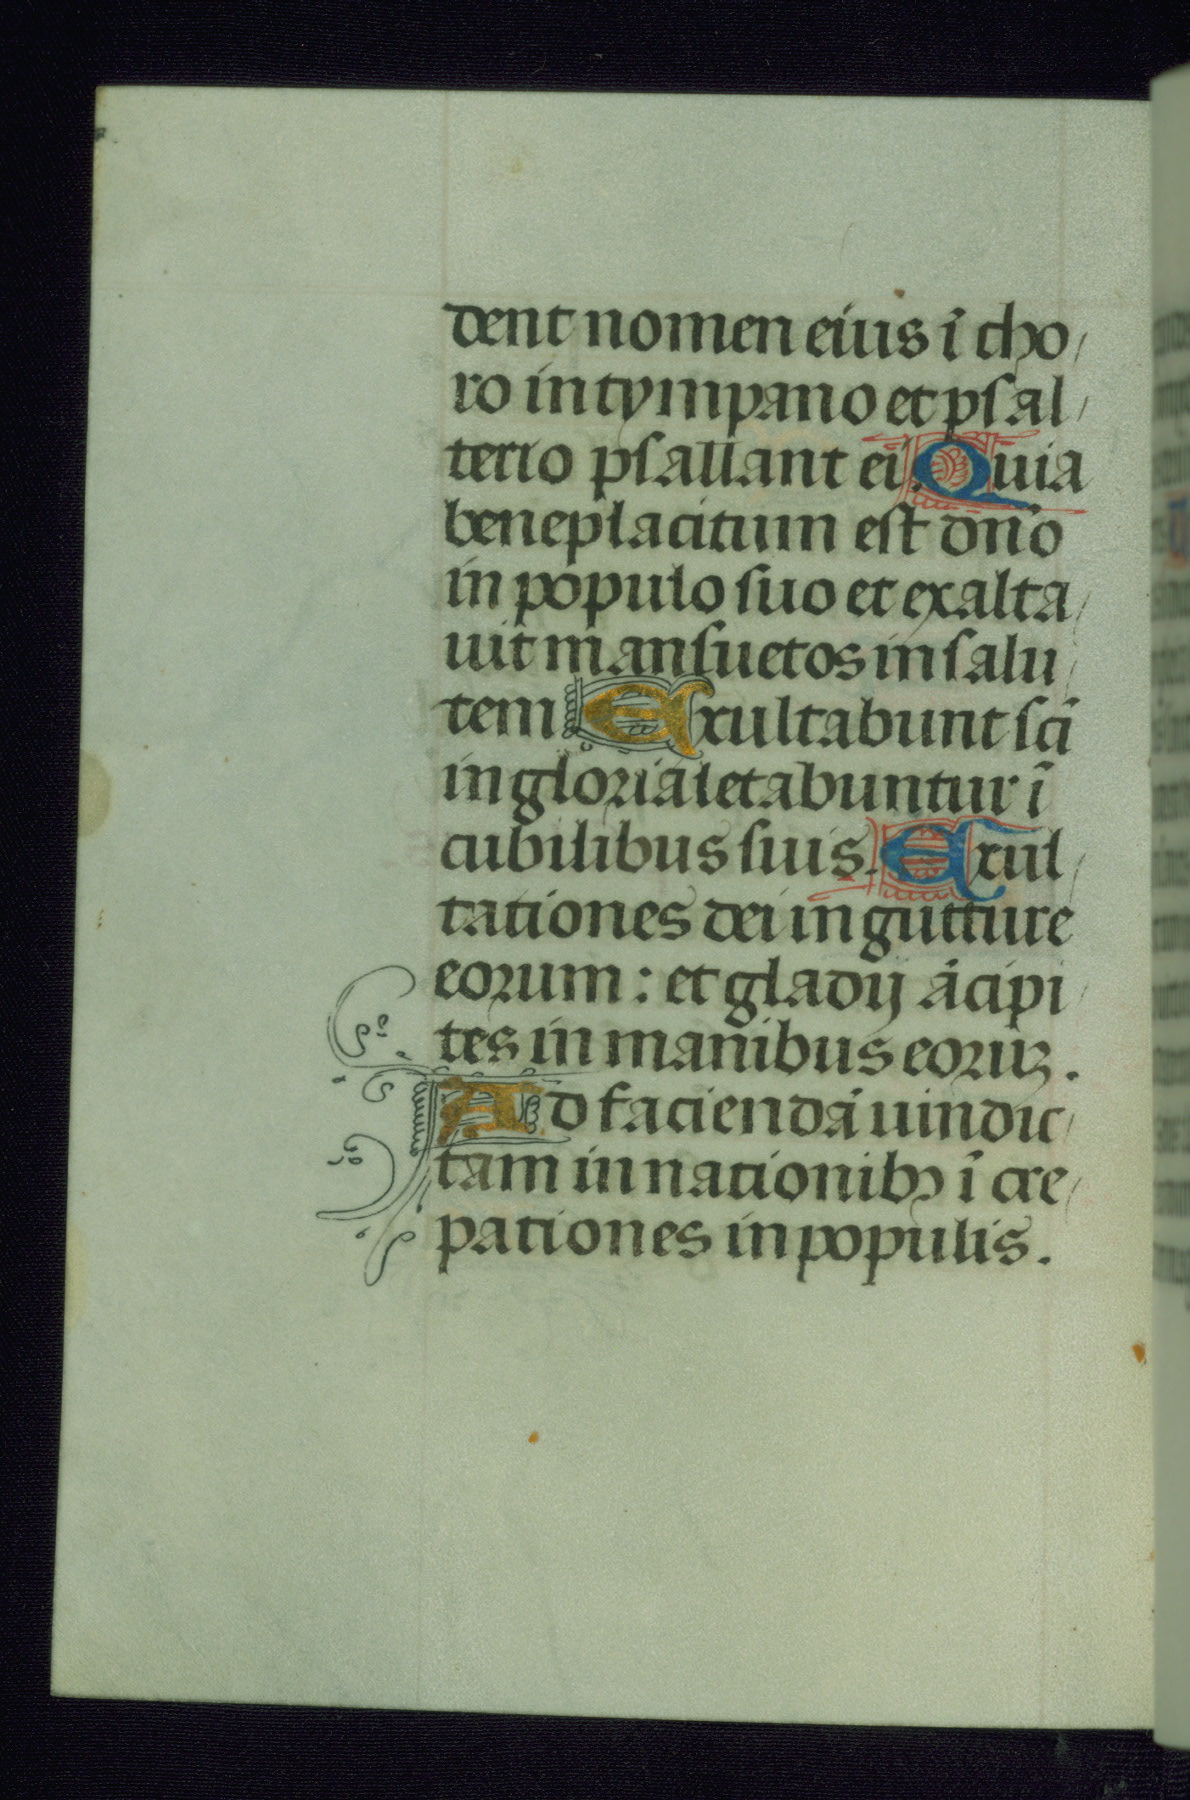 dent nomen eius ī cho/
ro in tympano et psal/
terio psallant ei. Quia
beneplacitum est dn̄o
in populo suo et exalta/
uit mansuetos in salu/
tem Exultabunt sc̄i
in gloria letabuntur ī
cubilibus suis. Exul/
tationes dei in gutture
eorum: et gladij ācipi/
tes in manibus eoruꝫ.
Ad faciendā uindic/
tam in nationibꝫ ī cre/
pationes in populis.